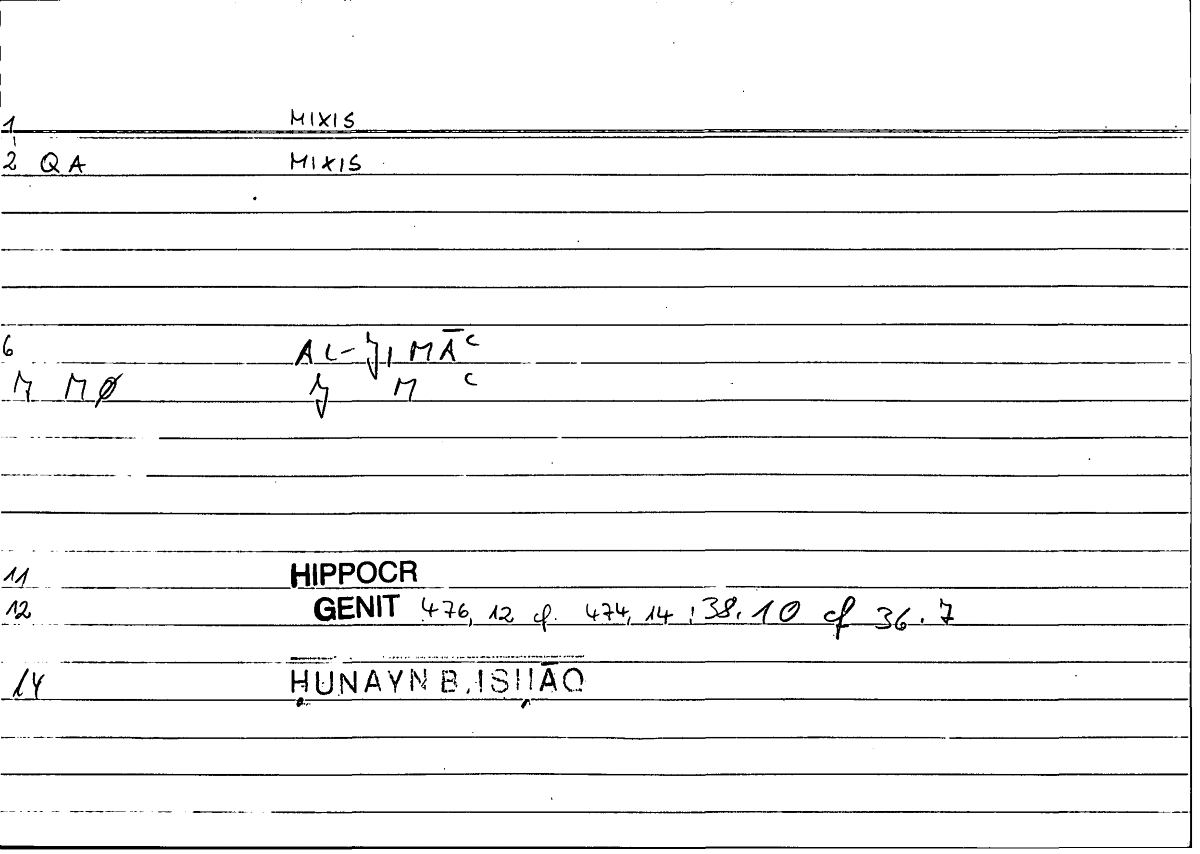 1 MIXIS
2 QA MIXIS
6 AL-JIMĀʿ
J MØ J M ʿ
11 HIPPOCR
12 GENIT 476, 12 cf. 474, 14 : 38.10 cf 36.7
14 ḤUNAYN B. ISḤĀQ